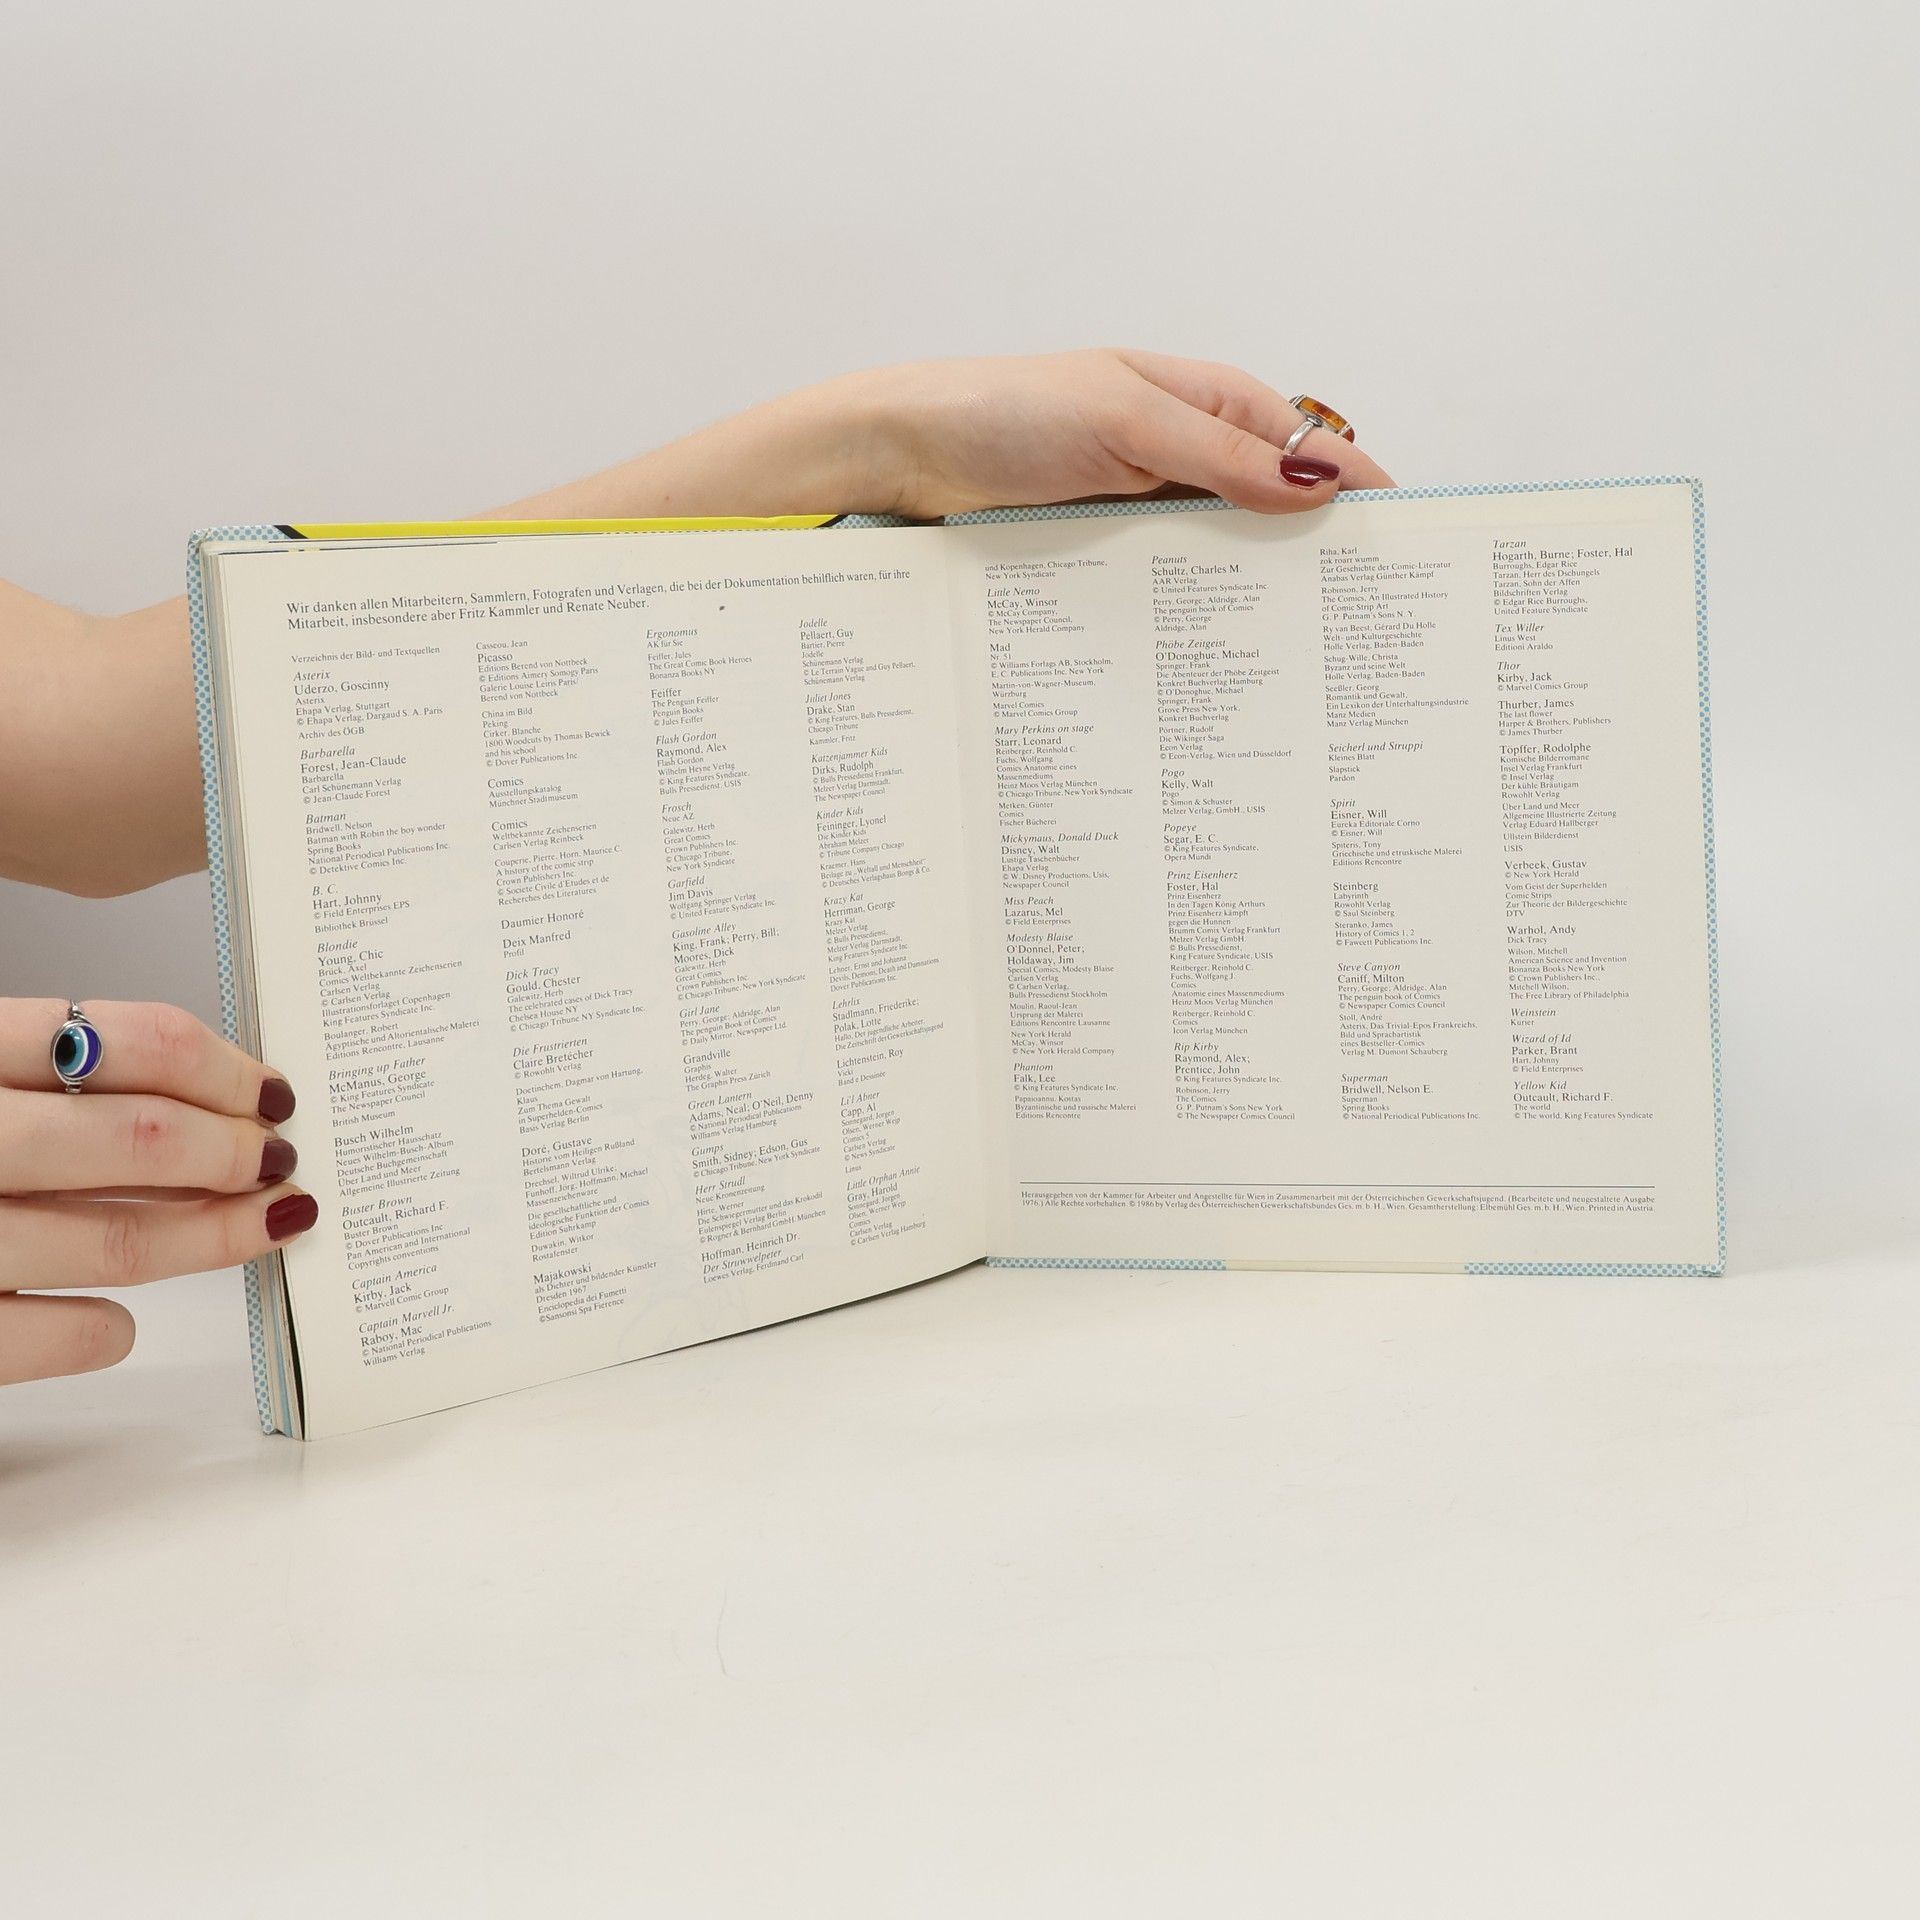 Wir danken allen Mitarbeitern, Sammlern, Fotografen und Verlagen, die bei der Dokumentation behilflich waren, für ihre
Mitarbeit, insbesondere aber Fritz Kammler und Renate Neuber.
Verzeichnis der Bild- und Textquellen
Asterix
Uderzo, Goscinny
Asterix
Ehapa Verlag, Stuttgart
© Ehapa Verlag, Dargaud S. A. Paris
Archiv des ÖGB
Barbarella
Forest, Jean-Claude
Barbarella
Carl Schünemann Verlag
© Jean-Claude Forest
Batman
Bridwell, Nelson
Batman with Robin the boy wonder
Spring Books
National Periodical Publications Inc.
© Detektive Comics Inc.
B. C.
Hart, Johnny
© Field Enterprises EPS
Bibliothek Brüssel
Blondie
Young, Chic
Brück, Axel
Comics Weltbekannte Zeichenserien
Carlsen Verlag
© Carlsen Verlag
Illustrationsforlaget Copenhagen
King Features Syndicate Inc.
Boulanger, Robert
Ägyptische und Altorientalische Malerei
Editions Rencontre, Lausanne
Bringing up Father
McManus, George
© King Features Syndicate
The Newspaper Council
British Museum
Busch Wilhelm
Humoristischer Hausschatz
Neues Wilhelm-Busch-Album
Deutsche Buchgemeinschaft
Über Land und Meer
Allgemeine Illustrierte Zeitung
Buster Brown
Outcault, Richard F.
Buster Brown
© Dover Publications Inc
Pan American and International
Copyrights conventions
Captain America
Kirby, Jack
© Marvell Comic Group
Captain Marvell Jr.
Raboy, Mac
© National Periodical Publications
Williams Verlag
Casseou, Jean
Picasso
Editions Berend von Nottbeck
© Editions Aimery Somogy Paris
Galerie Louise Leiris Paris/
Berend von Nottbeck
China im Bild
Peking
Cirker, Blanche
1800 Woodcuts by Thomas Bewick
and his school
© Dover Publications Inc.
Comics
Ausstellungskatalog
Münchner Stadtmuseum
Comics
Weltbekannte Zeichenserien
Carlsen Verlag Reinbeck
Couperie, Pierre, Horn, Maurice C.
A history of the comic strip
Crown Publishers Inc.
© Societe Civile d'Etudes et de
Recherches des Literatures
Daumier Honoré
Deix Manfred
Profil
Dick Tracy
Gould, Chester
Galewitz, Herb
The celebrated cases of Dick Tracy
Chelsea House NY
© Chicago Tribune NY Syndicate Inc.
Die Frustrierten
Claire Bretécher
© Rowohlt Verlag
Doetinchem, Dagmar von Hartung,
Klaus
Zum Thema Gewalt
in Superhelden-Comics
Basis Verlag Berlin
Doré, Gustave
Historie vom Heiligen Rußland
Bertelsmann Verlag
Drechsel, Wiltrud Ulrike;
Funhoff, Jörg; Hoffmann, Michael
Massenzeichenware
Die gesellschaftliche und
ideologische Funktion der Comics
Edition Suhrkamp
Duwakin, Witkor
Rostafenster
Majakowski
als Dichter und bildender Künstler
Dresden 1967
Enciclopedia dei Fumetti
©Sansonsi Spa Fierence
Ergonomus
AK für Sie
Feiffer, Jules
The Great Comic Book Heroes
Bonanza Books NY
Feiffer
The Penguin Feiffer
Penguin Books
© Jules Feiffer
Flash Gordon
Raymond, Alex
Flash Gordon
Wilhelm Heyne Verlag
© King Features Syndicate,
Bulls Pressedienst, USIS
Frosch
Neue AZ
Galewitz, Herb
Great Comics
Crown Publishers Inc.
© Chicago Tribune,
New York Syndicate
Garfield
Jim Davis
Wolfgang Springer Verlag
© United Feature Syndicate Inc.
Gasoline Alley
King, Frank; Perry, Bill;
Moores, Dick
Galewitz, Herb
Great Comics
Crown Publishers Inc.
© Chicago Tribune, New York Syndicate
Girl Jane
Perry, George; Aldridge, Alan
The penguin Book of Comics
© Daily Mirror, Newspaper Ltd.
Grandville
Graphis
Herdeg, Walter
The Graphis Press Zürich
Green Lantern
Adams, Neal; O'Neil, Denny
© National Periodical Publications
Williams Verlag Hamburg
Gumps
Smith, Sidney; Edson, Gus
© Chicago Tribune, New York Syndicate
Herr Strudl
Neue Kronenzeitung
Hirte, Werner
Die Schwiegermutter und das Krokodil
Eulenspiegel Verlag Berlin
© Rogner & Bernhard GmbH. München
Hoffman, Heinrich Dr.
Der Struwwelpeter
Loewes Verlag, Ferdmand Carl
Jodelle
Pellaert, Guy
Bartier, Pierre
Jodelle
Schünemann Verlag
© Le Terrain Vague and Guy Pellaert,
Schünemann Verlag
Juliet Jones
Drake, Stan
© King Features, Bulls Pressedienst,
Chicago Tribune
Kammler, Fritz
Katzenjammer Kids
Dirks, Rudolph
© Bulls Pressedienst Frankfurt,
Melzer Verlag Darmstadt,
The Newspaper Council
Kinder Kids
Feininger, Lyonel
Die Kinder Kids
Abraham Melzer
© Tribune Company Chicago
Kraemer, Hans
Beilage zu „Weltall und Menschheit"
© Deutsches Verlagshaus Bongs & Co.
Krazy Kat
Herrman, George
Krazy Kat
Melzer Verlag
© Bulls Pressedienst,
Melzer Verlag Darmstadt,
King Features Syndicate Inc
Lehner, Ernst und Johanna
Devils, Demons, Death and Damnations
Dover Publications Inc.
Lehrlix
Stadlmann, Friederike;
Polak, Lotte
Hallo, Der jugendliche Arbeiter,
Die Zeitschrift der Gewerkschaftsjugend
Lichtenstein, Roy
Vicki
Band e Dessinée
Li'l Abner
Capp, Al
Sonnegard, Jorgen
Olsen, Werner Weip
Comics 5
Carlsen Verlag
© News Syndicate
Linus
Little Orphan Annie
Gray, Harold
Sonnegard, Jorgen
Olsen, Werner Weip
Comics
Carlsen Verlag
© Carlsen Verlag Hamburg
und Kopenhagen, Chicago Tribune,
New York Syndicate
Little Nemo
McCay, Winsor
© McCay Company,
The Newspaper Council,
New York Herald Company
Mad
Nr. 51
© Williams Forlags AB, Stockholm,
E. C. Publications Inc. New York
Martin-von-Wagner-Museum,
Würzburg
Marvel Comics
© Marvel Comics Group
Mary Perkins on stage
Starr, Leonard
Reitberger, Reinhold C.
Fuchs, Wolfgang
Comics Anatomie eines
Massenmediums
Heinz Moos Verlag München
© Chicago Tribune, New York Syndicate
Metken, Günter
Comics
Fischer Bücherei
Mickymaus, Donald Duck
Disney, Walt
Lustige Taschenbücher
Ehapa Verlag
© W. Disney Productions, Usis,
Newspaper Council
Miss Peach
Lazarus, Mel
© Field Enterprises
Modesty Blaise
O'Donnel, Peter;
Holdaway, Jim
Special Comics, Modesty Blaise
Carlsen Verlag
© Carlsen Verlag,
Bulls Pressedienst Stockholm
Moulin, Raoul-Jean
Ursprung der Malerei
Editions Rencontre Lausanne
New York Herald
McCay, Winsor
© New York Herald Company
Phantom
Falk, Lee
© King Features Syndicate Inc.
Papaioannu, Kostas
Byzantinische und russische Malerei
Editions Rencontre
Peanuts
Schultz, Charles M.
AAR Verlag
© United Features Syndicate Inc.
Perry, George; Aldridge, Alan
The penguin book of Comics
© Perry, George
Aldridge, Alan
Phöbe Zeitgeist
O'Donoghue, Michael
Springer, Frank
Die Abenteuer der Phöbe Zeitgeist
Konkret Buchverlag Hamburg
© O'Donoghue, Michael
Springer, Frank
Grove Press New York,
Konkret Buchverlag
Pörtner, Rudolf
Die Wikinger Saga
Econ Verlag
© Econ-Verlag, Wien und Düsseldorf
Pogo
Kelly, Walt
Pogo
© Simon & Schuster
Melzer Verlag, GmbH., USIS
Popeye
Segar, E. C.
© King Features Syndicate,
Opera Mundi
Prinz Eisenherz
Foster, Hal
Prinz Eisenherz
In den Tagen König Arthurs
Prinz Eisenherz kämpft
gegen die Hunnen
Brumm Comix Verlag Frankfurt
Melzer Verlag GmbH.
© Bulls Pressedienst,
King Feature Syndicate, USIS
Reitberger, Reinhold C.
Fuchs, Wolfgang J.
Comics
Anatomie eines Massenmediums
Heinz Moos Verlag München
Reitberger, Reinhold C.
Comics
Icon Verlag München
Rip Kirby
Raymond, Alex;
Prentice, John
© King Features Syndicate Inc.
Robinson, Jerry
The Comics
G. P. Putnam's Sons New York
© The Newspaper Comics Council
Riha, Karl
zok roarr wumm
Zur Geschichte der Comic-Literatur
Anabas Verlag Günther Kämpf
Robinson, Jerry
The Comics, An Illustrated History
of Comic Strip Art
G. P. Putnam's Sons N. Y.
Ry van Beest, Gérard Du Holle
Welt- und Kulturgeschichte
Holle Verlag, Baden-Baden
Schug-Wille, Christa
Byzanz und seine Welt
Holle Verlag, Baden-Baden
Seeßler, Georg
Romantik und Gewalt,
Ein Lexikon der Unterhaltungsindustrie
Manz Medien
Manz Verlag München
Seicherl und Struppi
Kleines Blatt
Slapstick
Pardon
Spirit
Eisner, Will
Eureka Editoriale Corno
© Eisner, Will
Spiteris, Tony
Griechische und etruskische Malerei
Editions Rencontre
Steinberg
Labyrinth
Rowohlt Verlag
© Saul Steinberg
Steranko, James
History of Comics 1, 2
© Fawcett Publications Inc.
Steve Canyon
Caniff, Milton
Perry, George; Aldridge, Alan
The penguin book of Comics
© Newspaper Comics Council
Stoll, André
Asterix, Das Trivial-Epos Frankreichs,
Bild und Sprachartistik
eines Bestseller-Comics
Verlag M. Dumont Schauberg
Superman
Bridwell, Nelson E.
Superman
Spring Books
© National Periodical Publications Inc.
Tarzan
Hogarth, Burne; Foster, Hal
Burroughs, Edgar Rice
Tarzan, Herr des Dschungels
Tarzan, Sohn der Affen
Bildschriften Verlag
© Edgar Rice Burroughs,
United Feature Syndicate
Tex Willer
Linus West
Editioni Araldo
Thor
Kirby, Jack
© Marvel Comics Group
Thurber, James
The last flower
Harper & Brothers, Publishers
© James Thurber
Töpffer, Rodolphe
Komische Bilderromane
Insel Verlag Frankfurt
© Insel Verlag
Der kühle Bräutigam
Rowohlt Verlag
Über Land und Meer
Allgemeine Illustrierte Zeitung
Verlag Eduard Hallberger
Ullstein Bilderdienst
USIS
Verbeek, Gustav
© New York Herald
Vom Geist der Superhelden
Comic Strips
Zur Theorie der Bildergeschichte
DTV
Warhol, Andy
Dick Tracy
Wilson, Mitchell
American Science and Invention
Bonanza Books New York
© Crown Publishers Inc.,
Mitchell Wilson,
The Free Library of Philadelphia
Weinstein
Kurier
Wizard of Id
Parker, Brant
Hart, Johnny
© Field Enterprises
Yellow Kid
Outcault, Richard F.
The world
© The world, King Features Syndicate
Herausgegeben von der Kammer für Arbeiter und Angestellte für Wien in Zusammenarbeit mit der Österreichischen Gewerkschaftsjugend. (Bearbeitete und neugestaltete Ausgabe
1976.) Alle Rechte vorbehalten. © 1986 by Verlag des Österreichischen Gewerkschaftsbundes Ges. m. b. H., Wien. Gesamtherstellung: Elbemühl Ges. m. b. H., Wien. Printed in Austria.